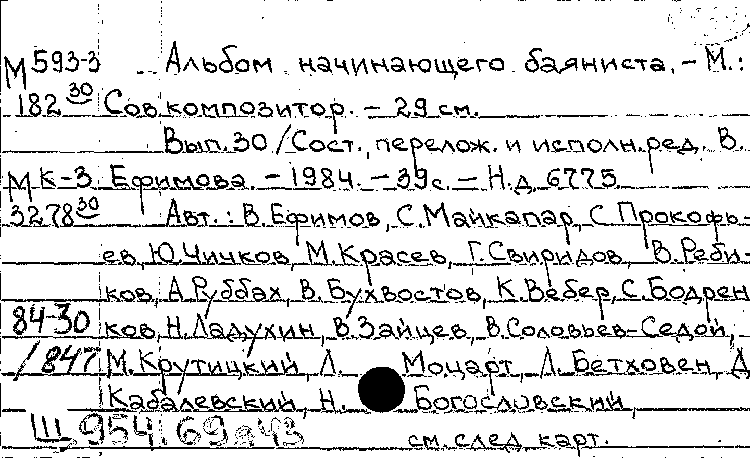 М 593-3 Альбом начинающего баяниста. – М.:
182 30 Сов композитор. – 29 см.
Вып. 30 / Сост., перелож. и исполн. ред. В.
М К-3 Ефимова. – 1984. – 39 с. – Н.д. 6775
3278 30 Авт.: В. Ефимов, С. Майкапар, С. Прокофь-
ев, Ю. Чичков, М. Красев, Г. Свиридов, В. Реби-
ков, А. Руббах, В. Бухвостов, К. Вебер, С. Бодрен
84-30 ков, Н. Ладухин, В. Зайцев, В. Соловьев-Седой,
/847 М. Крутицкий, Л. Моцарт, Л. Бетховен, Д
Кабалевский, Н. Богословский,
Ш 954.69я43 см. след. карт.